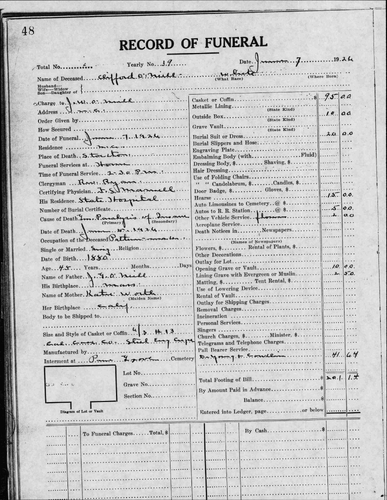 48
RECORD OF FUNERAL
Total No. Yearly No. 19 Date June 7, 1926
Name of Deceased Clifford O'Neill White
(What Race) (Where Born)
Husband,
Wife-Widow
Son-Daughter of
Charge to J. W. O'Neill
Address
Order Given by
How Secured
Date of Funeral June 7, 1926
Residence
Place of Death Stockton
Funeral Services at Home
Time of Funeral Service 2:30 P.M.
Clergyman Rev. Ryan
Certifying Physician
His Residence State Hospital
Number of Burial Certificate
Cause of Death Paralysis of Insane
Date of Death June 5, 1926
Occupation of the Deceased Pattern-maker
Single or Married Religion
Date of Birth 1880
Age 45 Years Months Days
Name of Father J. G. O'Neill
His Birthplace Mass.
Name of Mother Katie Worth
(Maiden Name)
Her Birthplace Caly
Body to be Shipped to
Size and Style of Casket or Coffin 6/3 H.13
Manufactured by
Interment at Cemetery
Lot No.
Grave No.
Section No.
Diagram of Lot or Vault
Casket or Coffin $ 95 00
Metallic Lining
(State Kind)
Outside Box
(State Kind)
Grave Vault
(State Kind)
Burial Suit or Dress 20 00
Burial Slippers and Hose
Engraving Plate
Embalming Body (with Fluid)
Dressing Body, $ Shaving, $
Hair Dressing
Use of Folding Chairs
" " Candelabrum, $ Candles, $
Door Badge, $ Gloves, $
Hearse 15 00
Auto Limousines to Cemetery, @ $
Autos to R. R. Station @ $
Other Vehicle Service flowers
Aeroplane Service
Death Notices in Newspapers
(Names of Newspapers)
Flowers, $ Rental of Plants, $
Other Decorations
Outlay for Lot
Opening Grave or Vault 10 00
Lining Grave with Evergreen or Muslin 2 50
Matting, $ Tent Rental, $
Use of Lowering Device
Rental of Vault
Outlay for Shipping Charges
Removal Charges
Incineration
Personal Services
Singers
Church Charges, $ Minister, $
Telegrams and Telephone Charges
Pall Bearer Service
41 64
Total Footing of Bill $
By Amount Paid in Advance
Balance
Entered into Ledger, page or below $
To Funeral Charges, Total, $
By Cash $